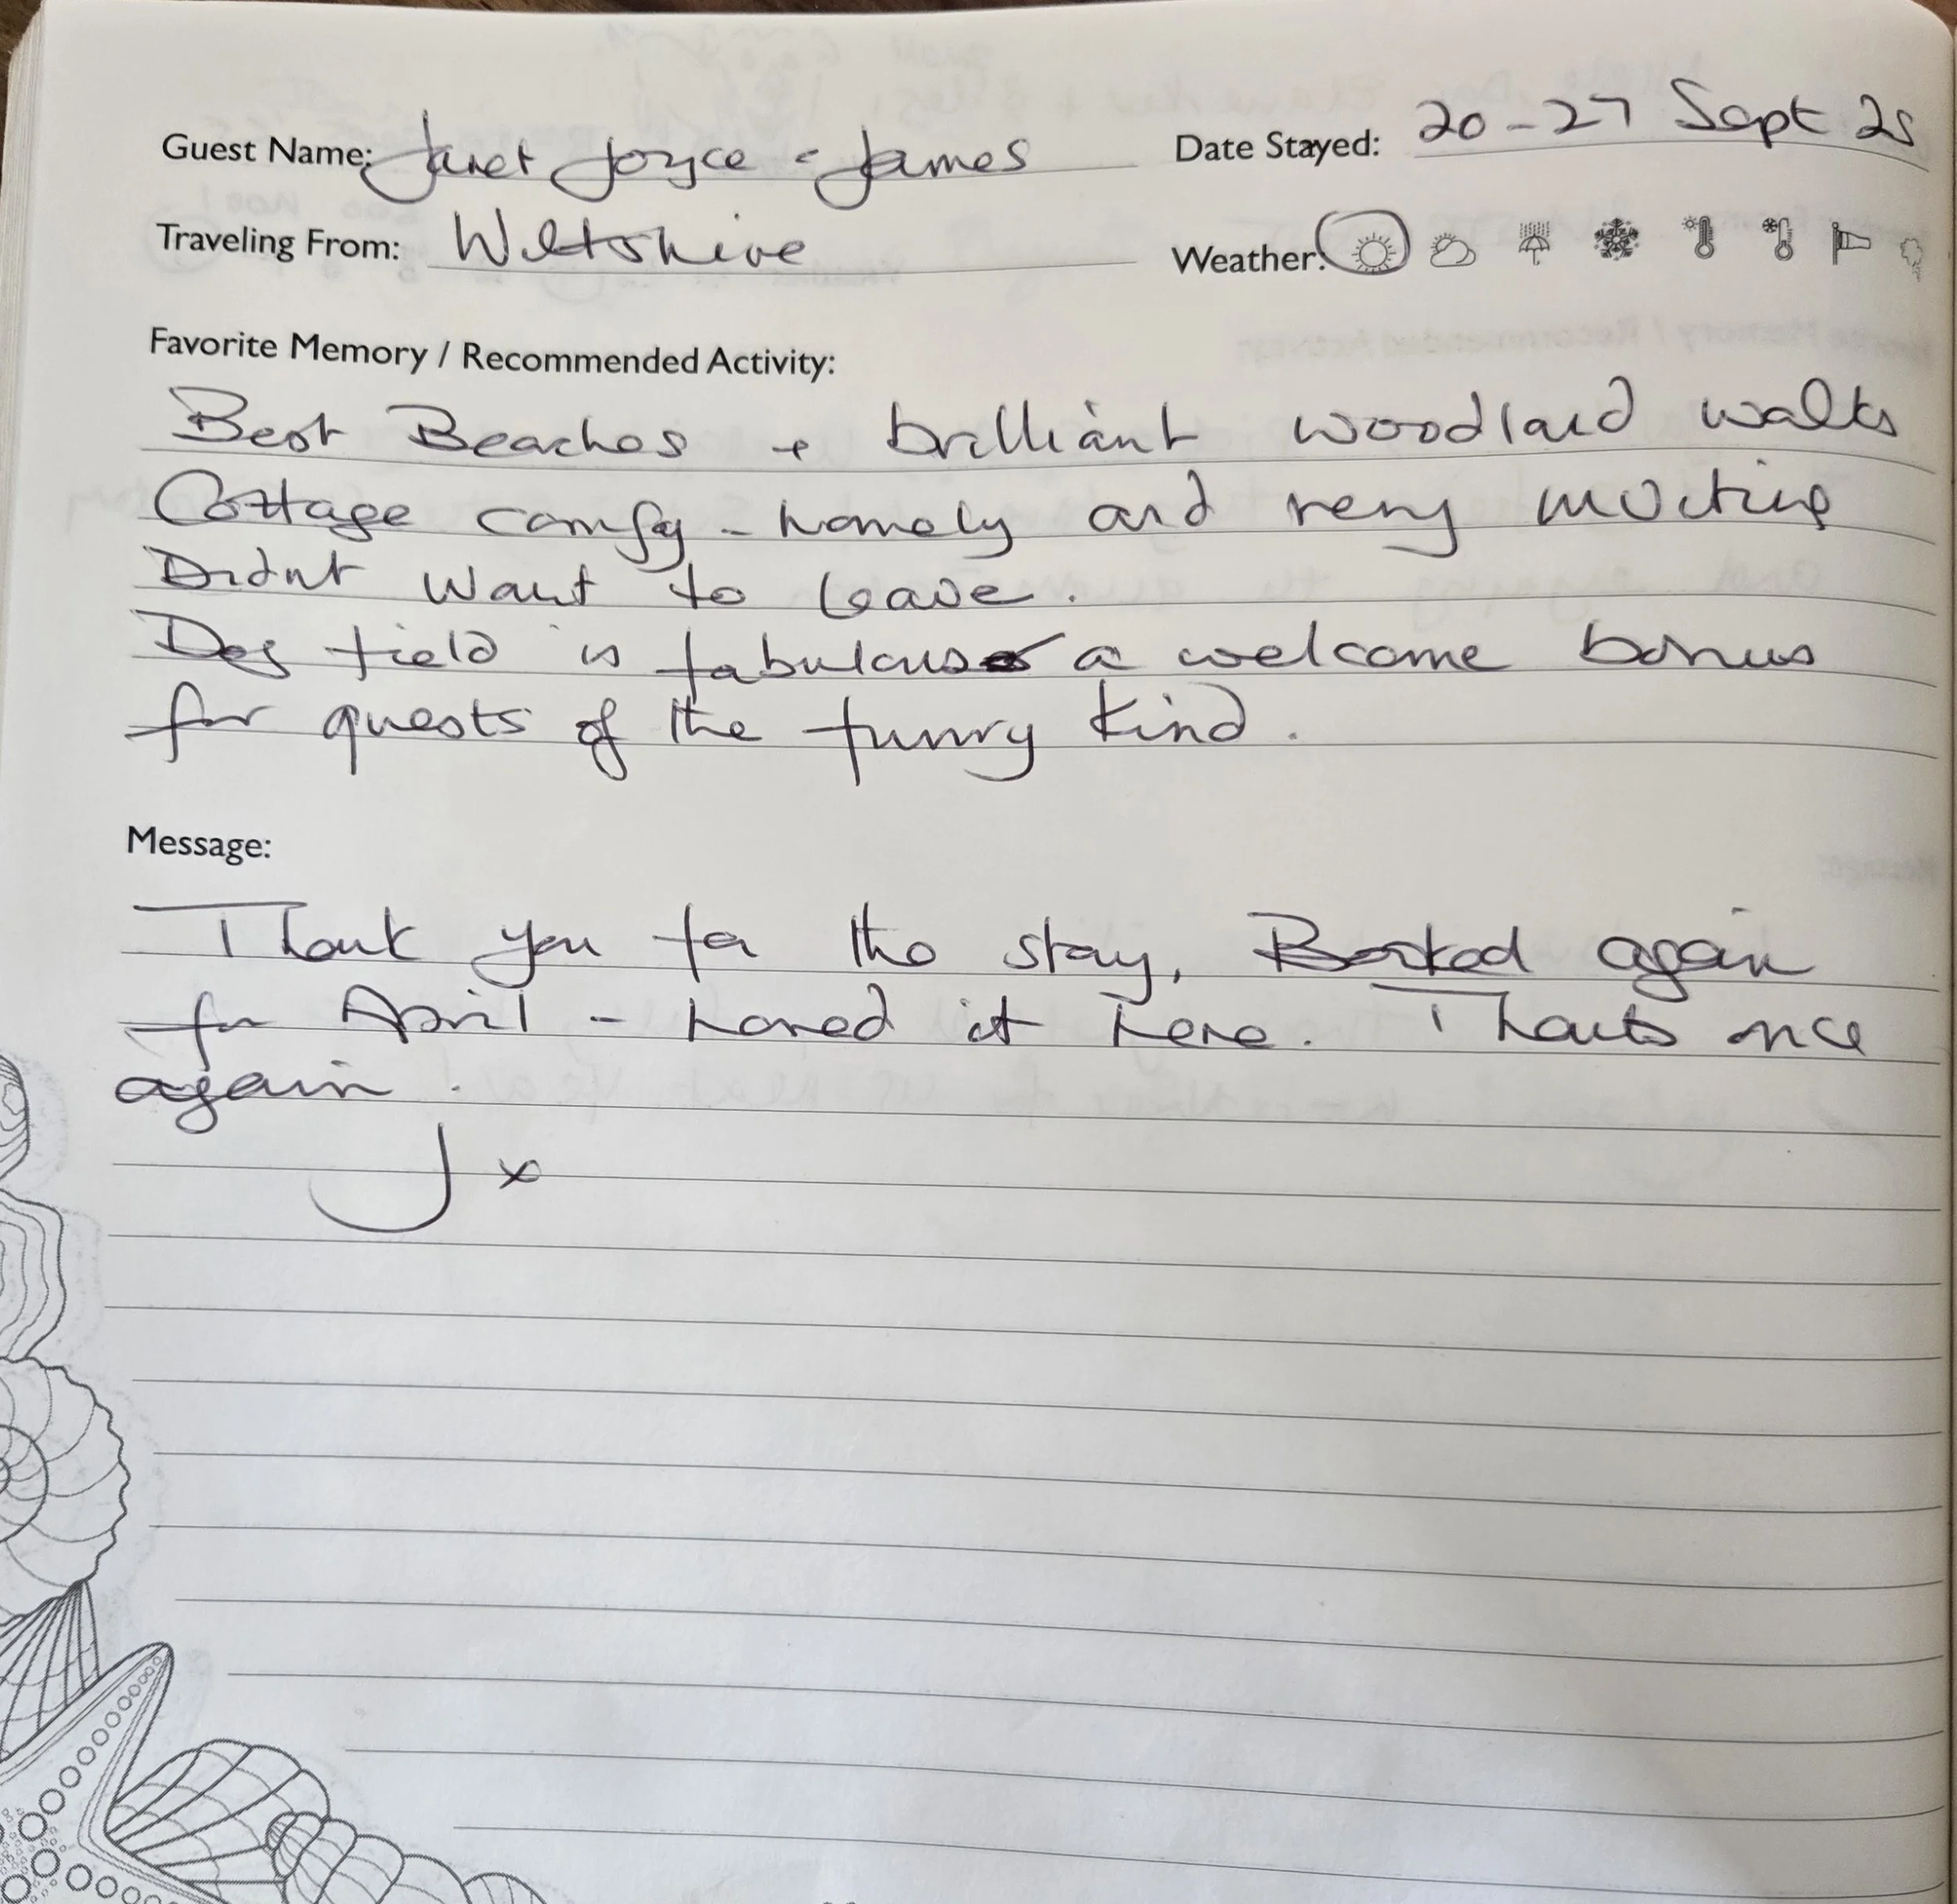 Guest Name: Janet Joyce-James
Date Stayed: 20-27 Sept 25
Traveling From: Wiltshire
Weather:
Favorite Memory / Recommended Activity:
Best Beaches + brilliant woodland walks
Cottage comfy - homely and very inviting
Didnt want to leave.
Dog field is fabulous a welcome bonus
for guests of the furry kind.
Message:
Thank you for the stay, Booked again
for April - loved it here. Thanks once
again.
J x